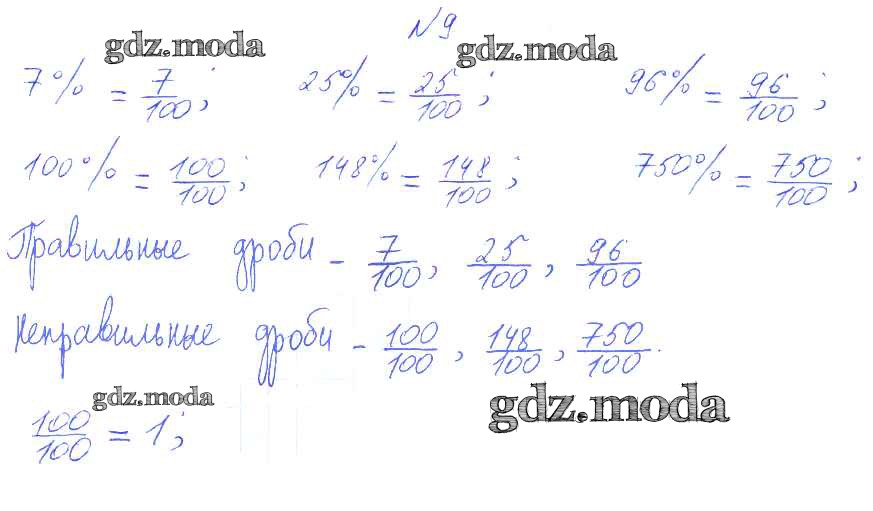 №9
gdz.moda gdz.moda
7% = 7/100; 25% = 25/100; 96% = 96/100;
100% = 100/100; 148% = 148/100; 750% = 750/100;
Правильные дроби - 7/100, 25/100, 96/100
Неправильные дроби - 100/100, 148/100, 750/100.
gdz.moda gdz.moda
100/100 = 1;